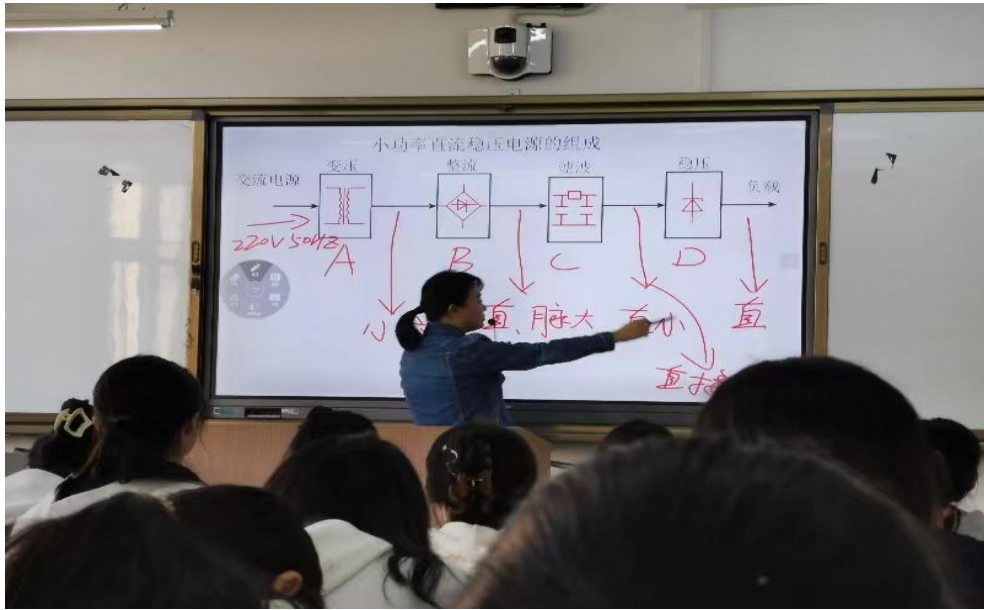 小功率直流稳压电源的组成
变压 整流 滤波 稳压
交流电源 负载
220V 50HZ
A B C D
小 直、脉大 直小 直
直